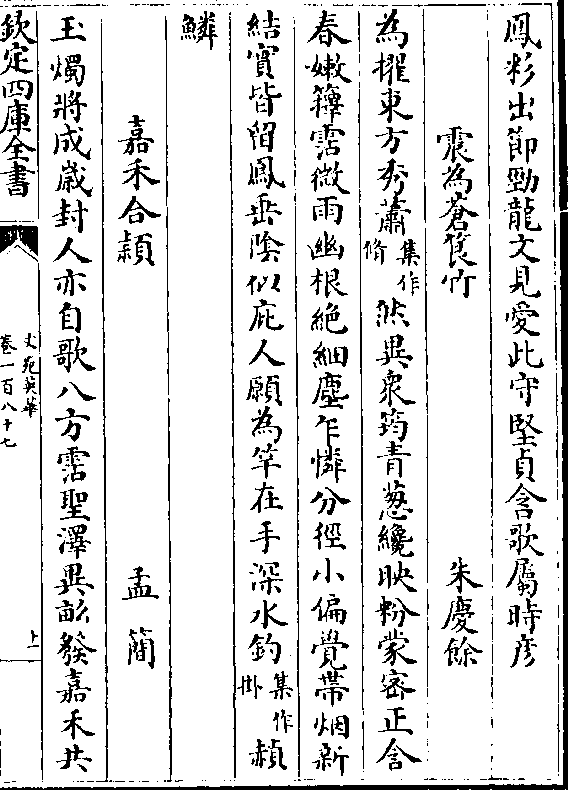 鳳彩出節勁龍文見愛此守堅貞含歌屬時彦
震為蒼筤竹　朱慶餘
為擢東方秀蕭集作脩然異衆筠青葱纔映粉蒙密正含
春嫩籜霑微雨幽根絶細塵乍憐分徑小偏覺帶烟新
結實皆留鳳垂陰似庇人願為竿在手深水釣集作掛赬
鱗
嘉禾合穎　孟簡
玉燭將成歲封人亦自歌八方霑聖澤異畝發嘉禾共
欽定四庫全書
文苑英華
卷一百八十七
十一